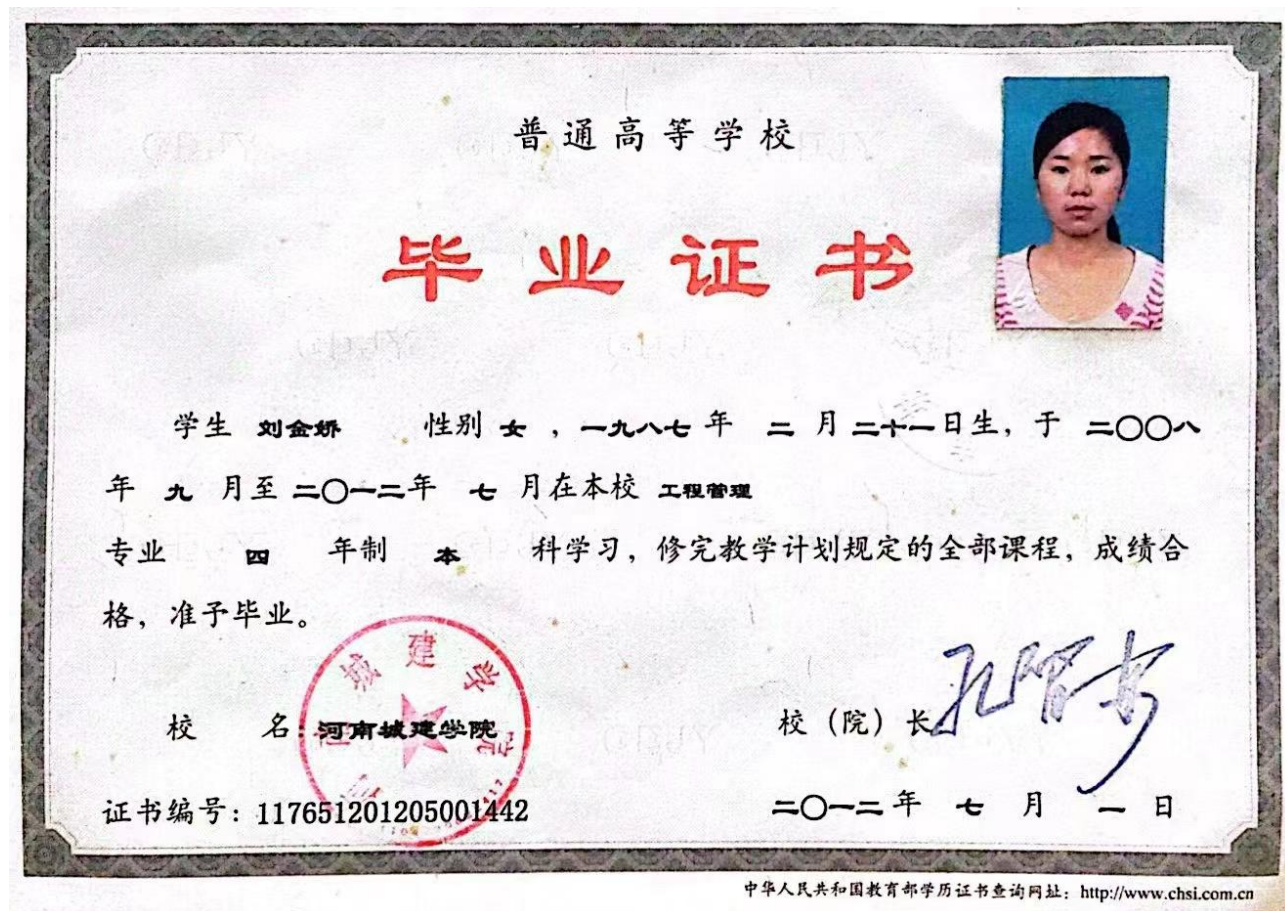 普通高等学校
毕业证书
学生 刘金娇 性别 女 ，一九八七 年 二 月 二十一日生，于 二〇〇八
年 九 月至 二〇一二年 七 月在本校 工程管理
专业 四 年制 本 科学习，修完教学计划规定的全部课程，成绩合
格，准予毕业。
城建学院
校 名：河南城建学院
校（院）长
证书编号：117651201205001442
二〇一二年 七 月 一 日
中华人民共和国教育部学历证书查询网址：http://www.chsi.com.cn